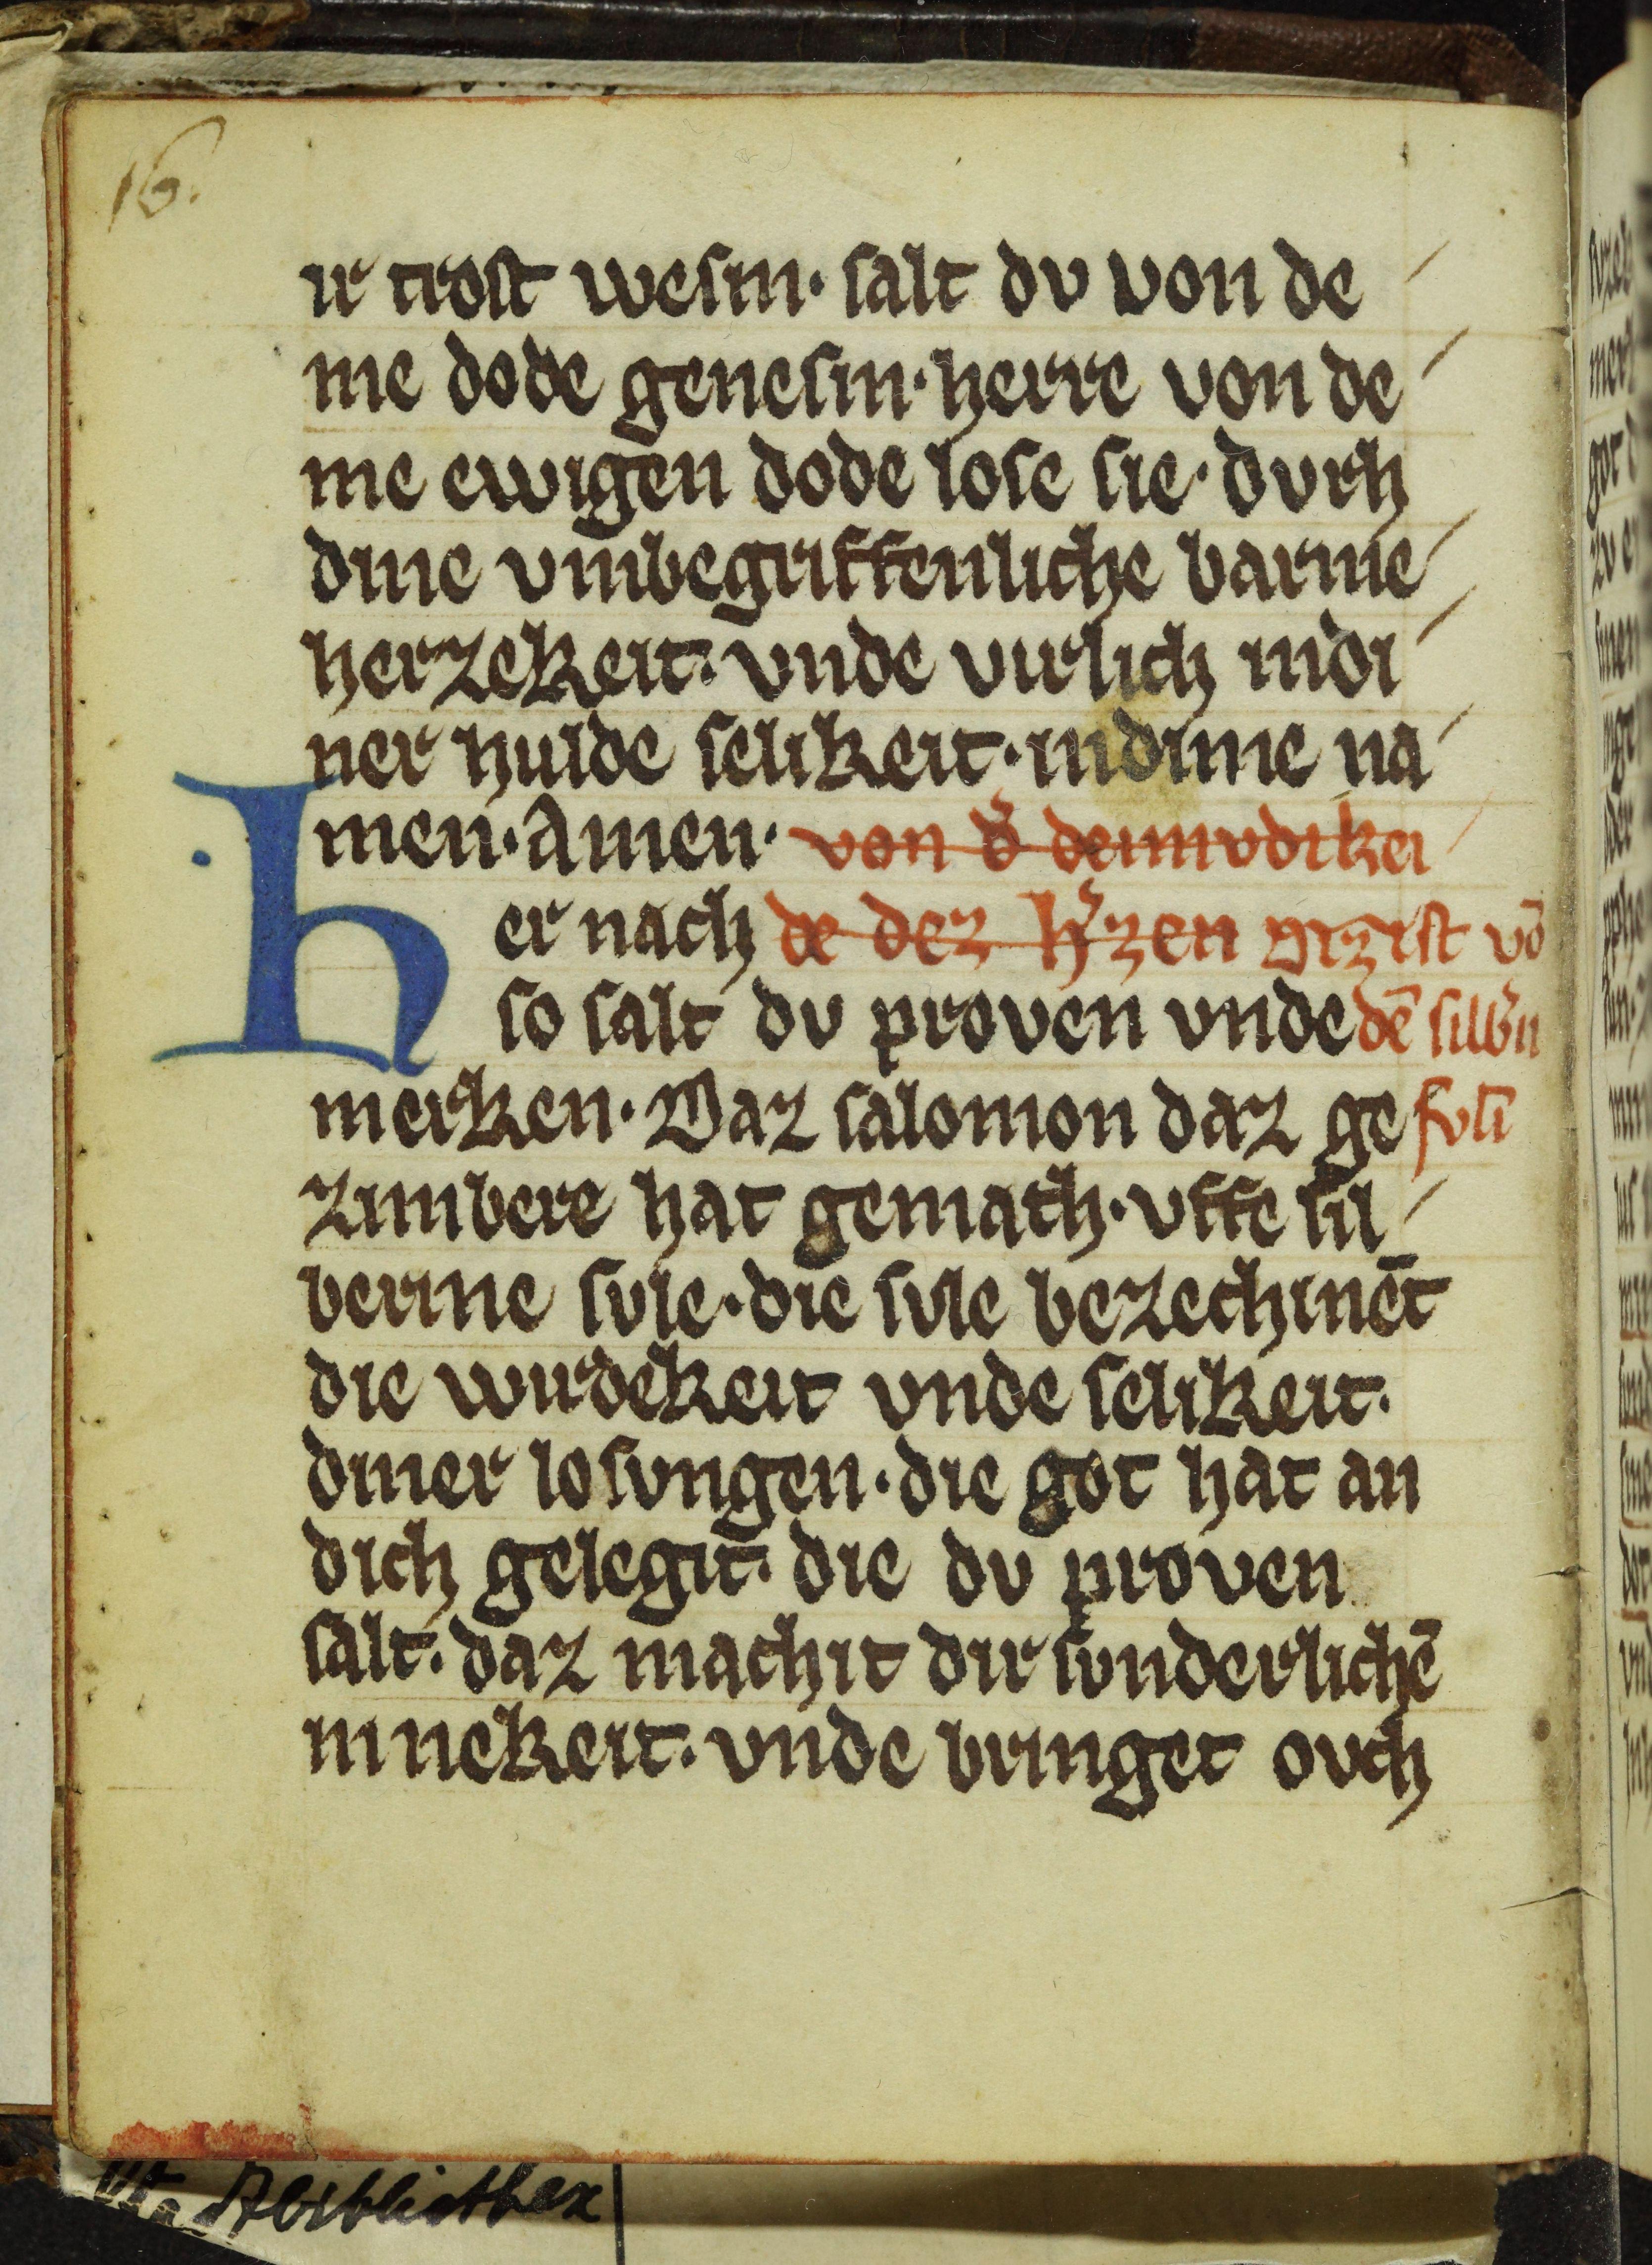 16.
ir trost wesin· salt dv von de
me dode genesin· herre von de
me ewigen dode lose sie· dvrh
dine vmbegriffenliche barme
herzekeit: vnde virlich indi
ner hulde selikeit· indime na
men· Amen· von d᷎ demvdikei
Her nach de dez h᷎zen girist vō
so salt dv proven vnde dē silb᷎n
merken· Daz salomon daz ge svlī
zimbere hat gemath· vffe sil
berine svle· die svle bezechinēt
die wirdekeit vnde selikeit·
diner losvngen· die got hat an
dich gelegit· die dv proven
salt· daz machit dir svnderlichē
innekeit· vnde bringet ovch
bibliothex